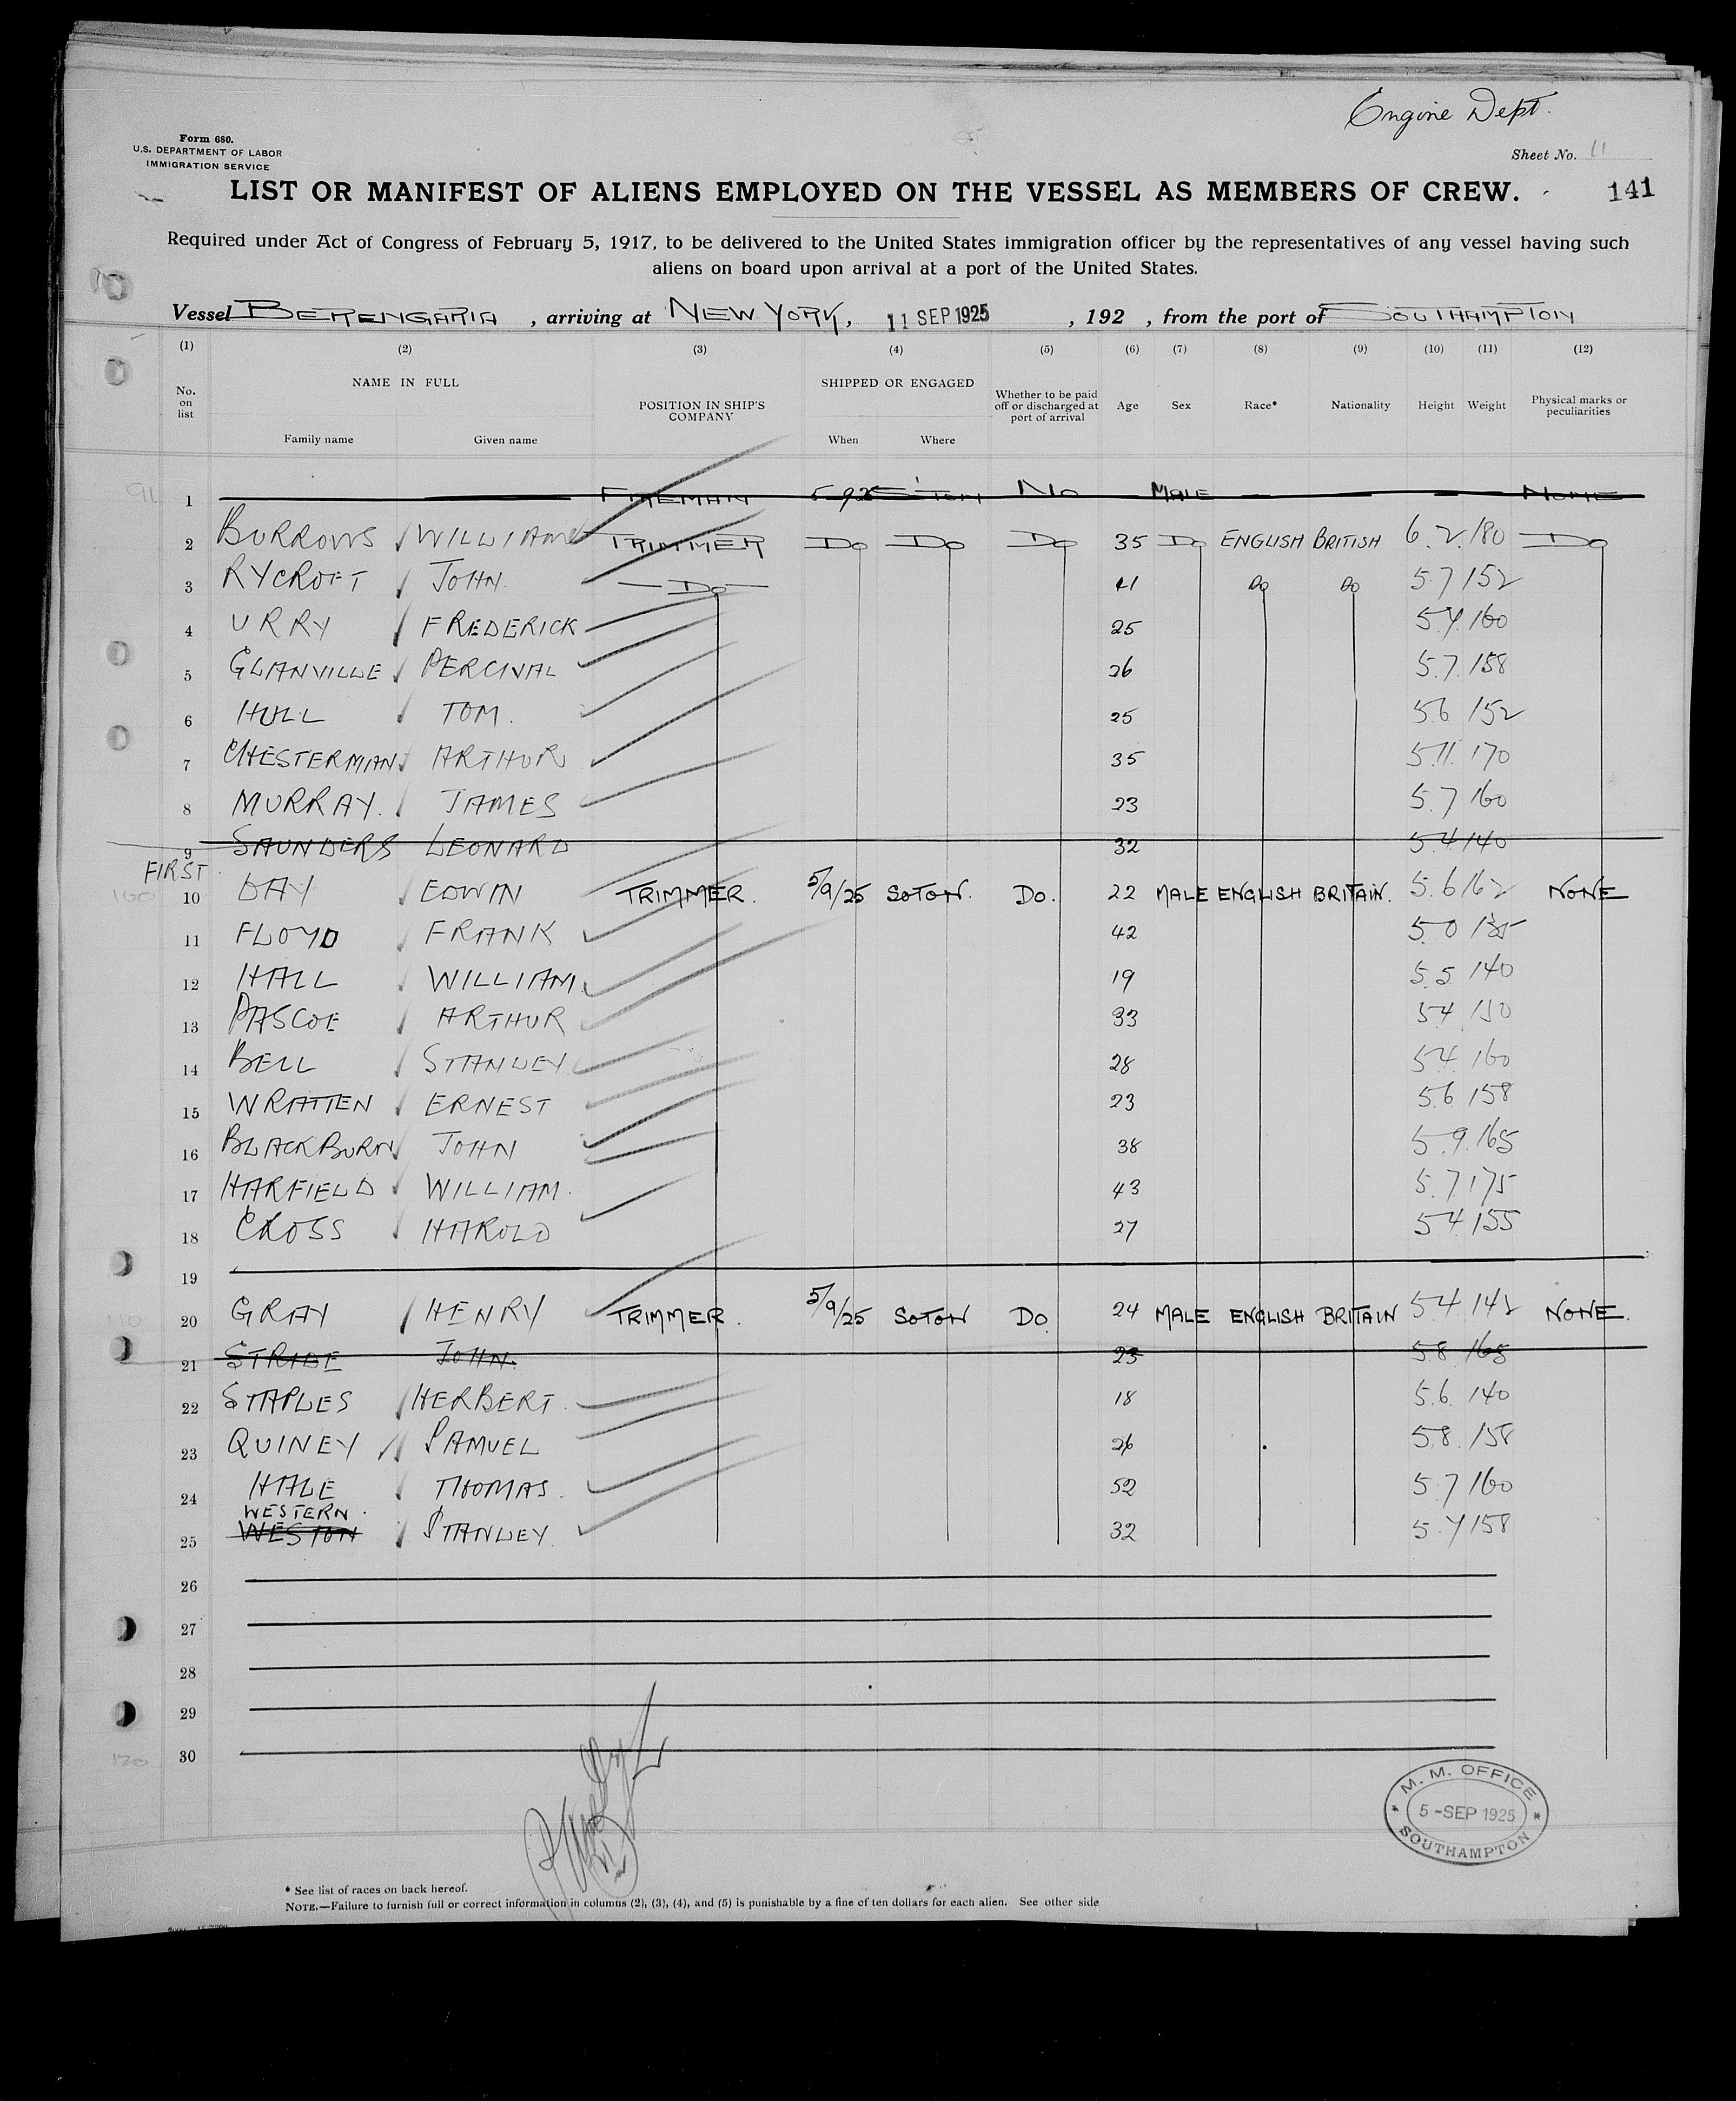 Engine Dept.
Form 680.
U.S. DEPARTMENT OF LABOR
IMMIGRATION SERVICE
Sheet No. 11
LIST OR MANIFEST OF ALIENS EMPLOYED ON THE VESSEL AS MEMBERS OF CREW.
141
Required under Act of Congress of February 5, 1917, to be delivered to the United States immigration officer by the representatives of any vessel having such
aliens on board upon arrival at a port of the United States.
Vessel BERENGARIA, arriving at NEW YORK, 11 SEP 1925, 192 , from the port of SOUTHAMPTON
(1) (2) (3) (4) (5) (6) (7) (8) (9) (10) (11) (12)
No. on list NAME IN FULL Family name Given name POSITION IN SHIP'S COMPANY SHIPPED OR ENGAGED When Where Whether to be paid off or discharged at port of arrival Age Sex Race* Nationality Height Weight Physical marks or peculiarities
91
1 FIREMAN 5-9-25 S'TON NO MALE NONE
2 BURROWS WILLIAM TRIMMER DO DO DO 35 DO ENGLISH BRITISH 6.2 180 DO
3 RYCROFT JOHN DO 41 DO DO 5.7 152
4 URRY FREDERICK 25 160
5 GLANVILLE PERCIVAL 26 5.7 158
6 HULL TOM. 25 5.6 152
7 CHESTERMAN ARTHUR 35 5.11 170
8 MURRAY. JAMES 23 5.7 160
9 SAUNDERS LEONARD 32 5.4 140
FIRST
100
10 DAY EDWIN TRIMMER. 5/9/25 SOTON. DO. 22 MALE ENGLISH BRITAIN. 5.6 162 NONE
11 FLOYD FRANK 42 5.0 135
12 HALL WILLIAM 19 5.5 140
13 PASCOE ARTHUR 33 5.4 150
14 BELL STANLEY 28 5.4 160
15 WRATTEN ERNEST 23 5.6 158
16 BLACKBURN JOHN 38 5.9 165
17 HARFIELD WILLIAM. 43 5.7 175
18 CROSS HAROLD 27 5.4 155
19
110
20 GRAY HENRY TRIMMER. 5/9/25 SOTON DO 24 MALE ENGLISH BRITAIN 5.4 NONE.
21 STRIDE JOHN. 23 5.8 165
22 STAPLES HERBERT. 18 5.6. 140
23 QUINEY SAMUEL 26 5.8. 158
24 HALE THOMAS. 52 5.7 160
WESTERN.
25 WESTON STANLEY. 32 158
26
27
28
29
30
120
M. M. OFFICE
5 - SEP 1925
SOUTHAMPTON
* See list of races on back hereof.
NOTE.—Failure to furnish full or correct information in columns (2), (3), (4), and (5) is punishable by a fine of ten dollars for each alien. See other side